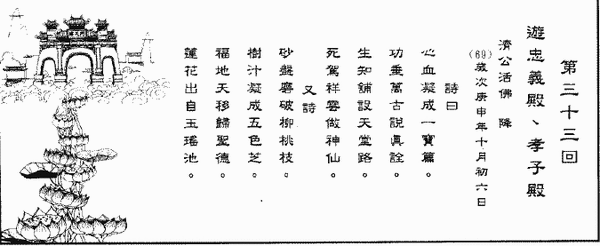 第三十三回
遊忠義殿、孝子殿
濟公活佛　降
(69)歲次庚申年十月初六日
詩曰
心血凝成一寶篇。
功垂萬古說真詮。
生知舖設天堂路。
死駕祥雲做神仙。
又詩
砂盤磨破柳桃枝。
樹汁凝成五色芝。
福地天移歸聖德。
蓮花出自玉瑤池。